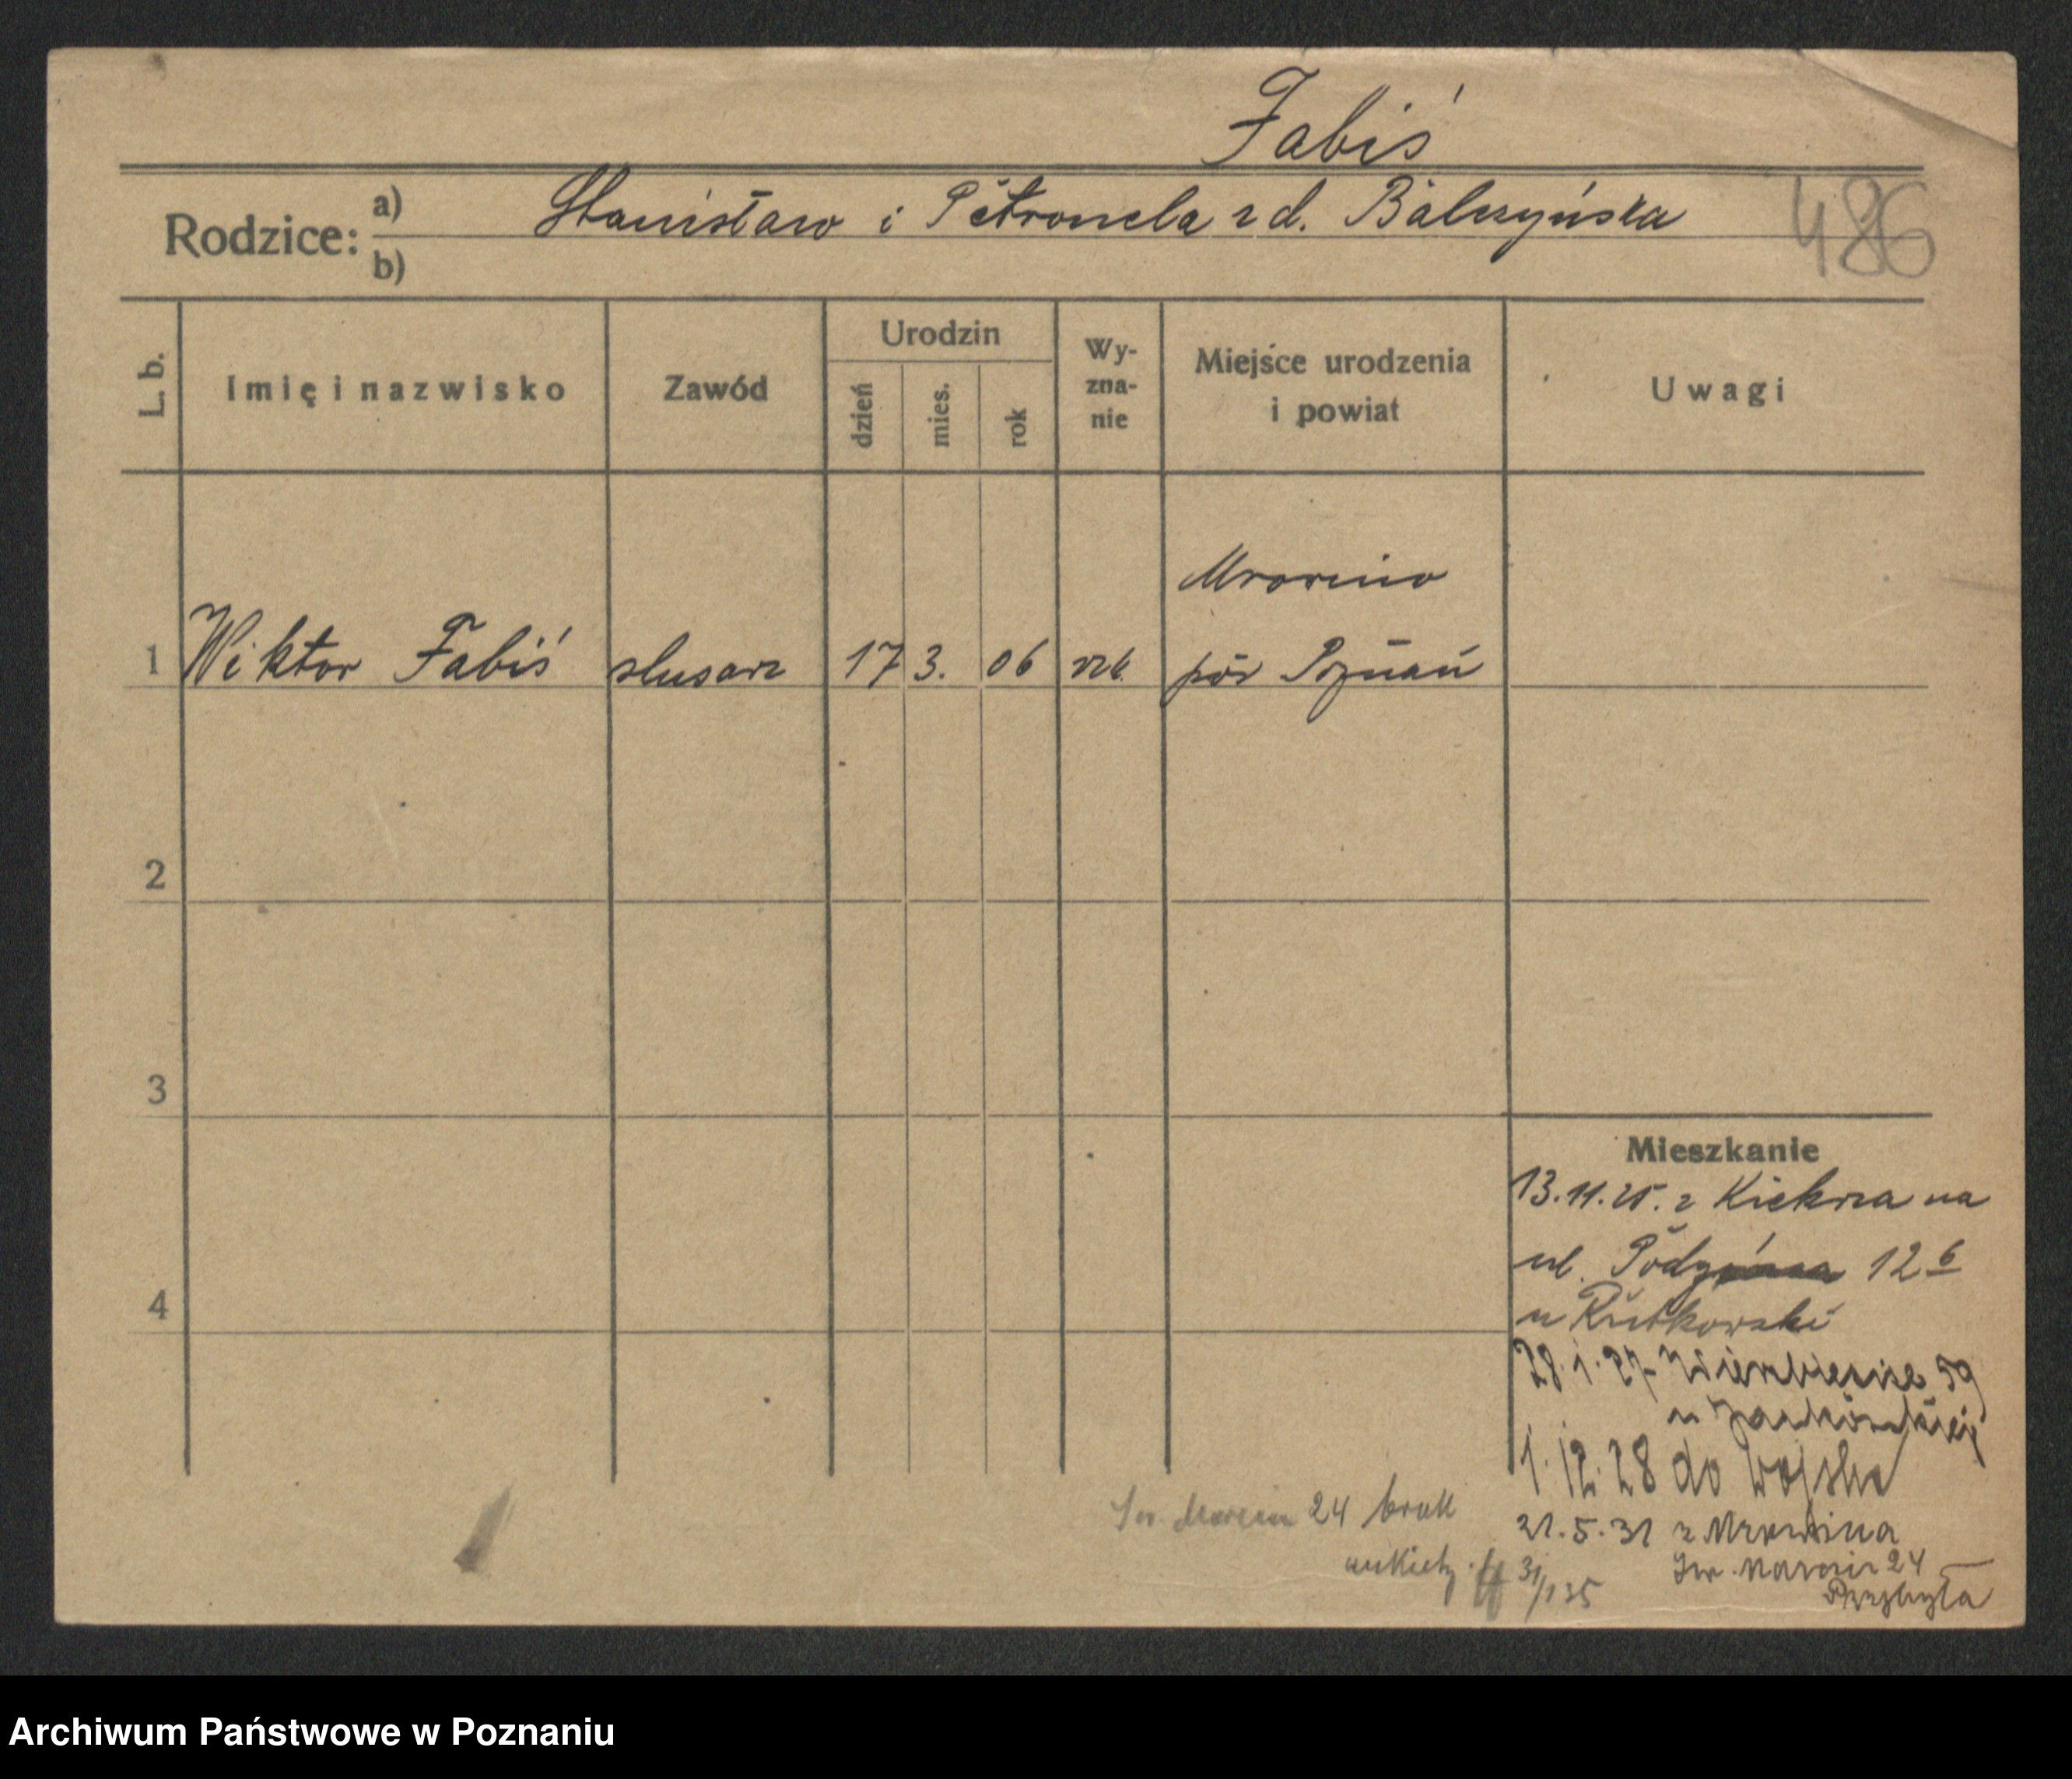 Fabiś
Rodzice: a) Stanisław i Petronela z d. Balczyńska 486
b)
L. b. Imię i nazwisko Zawód Urodzin dzień mies. rok Wy-zna-nie Miejsce urodzenia i powiat Uwagi
Mrowino
1 Wiktor Fabiś slusarz 17 3. 06 rzk. pow Poznań
2
3
Mieszkanie
13.11.25. z Kiekrza na
ul. 12 6
4
u Rutkowski
28.1.27 Wierzbięcice 59
u
1.12.28 do wojska
Św. Marcin 24 brak
21.5.31 z Mrowina
ankiety 31/135
Św. Marcin 24
Przybyła
Archiwum Państwowe w Poznaniu